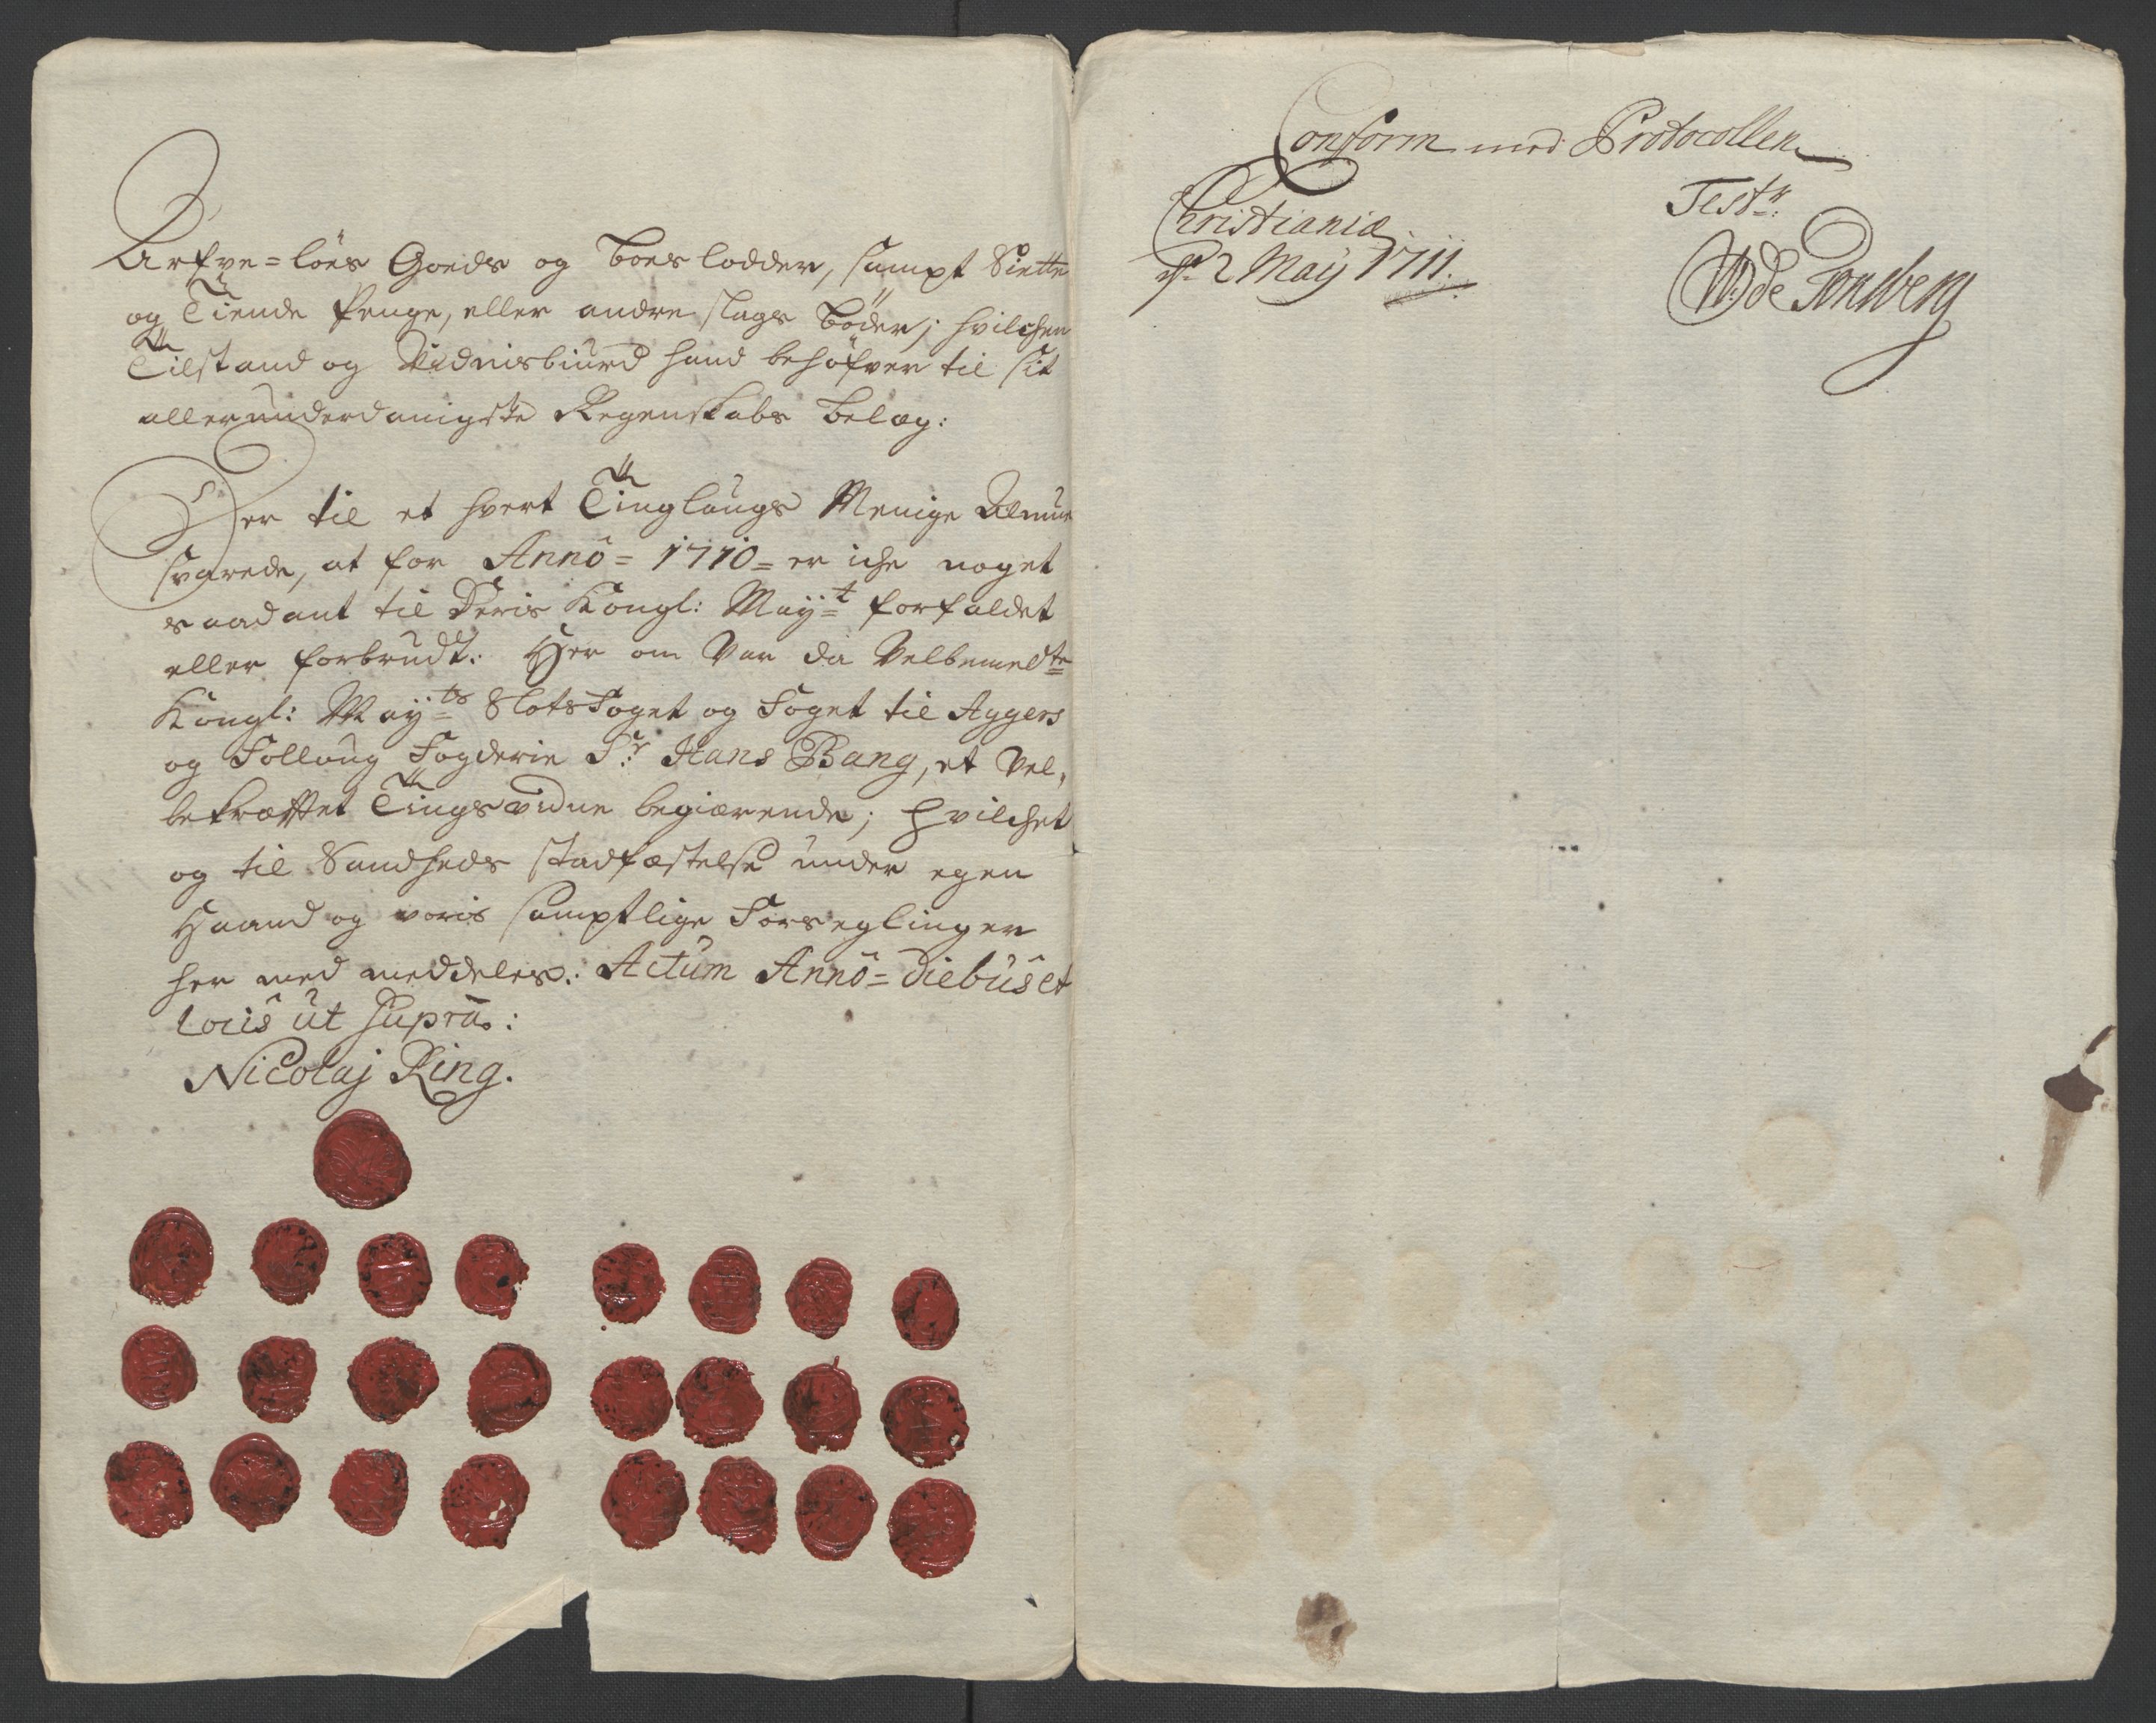 Arfve=löes Goeds og boeslodder, sampt Siette
og Tiende Penge, eller andre slags bøder; hvilchen
Tilstand og Vidnisbiurd hand behøfver til sit
allerunderdanigste Regenskabs belæg:
Der til et hvert Tinglaugs Menige Almue
svarede, at for Anno = 1710 = er iche noget
saadant til Deris Kongl: May:t forfaldet
eller forbrudt: Her om var da Velbemelte
Kongl: May:ts SlotsFoget og Foget til Aggers
og Folloug Fogderie Sr: Hans Bang, et vel,
bekræfftet Tingsvidne begiærende; hvilchet
og til Sandheds stadfæstelse under egen
Haand og voris samptlige Forseglinger
her med meddeles: Actum Anno = diebus et
locis ut supra:
Nicolaj Ring.
Conform med Protocollen
Test:
Christiania
d: 2 Maij 1711.
WdeTonsberg